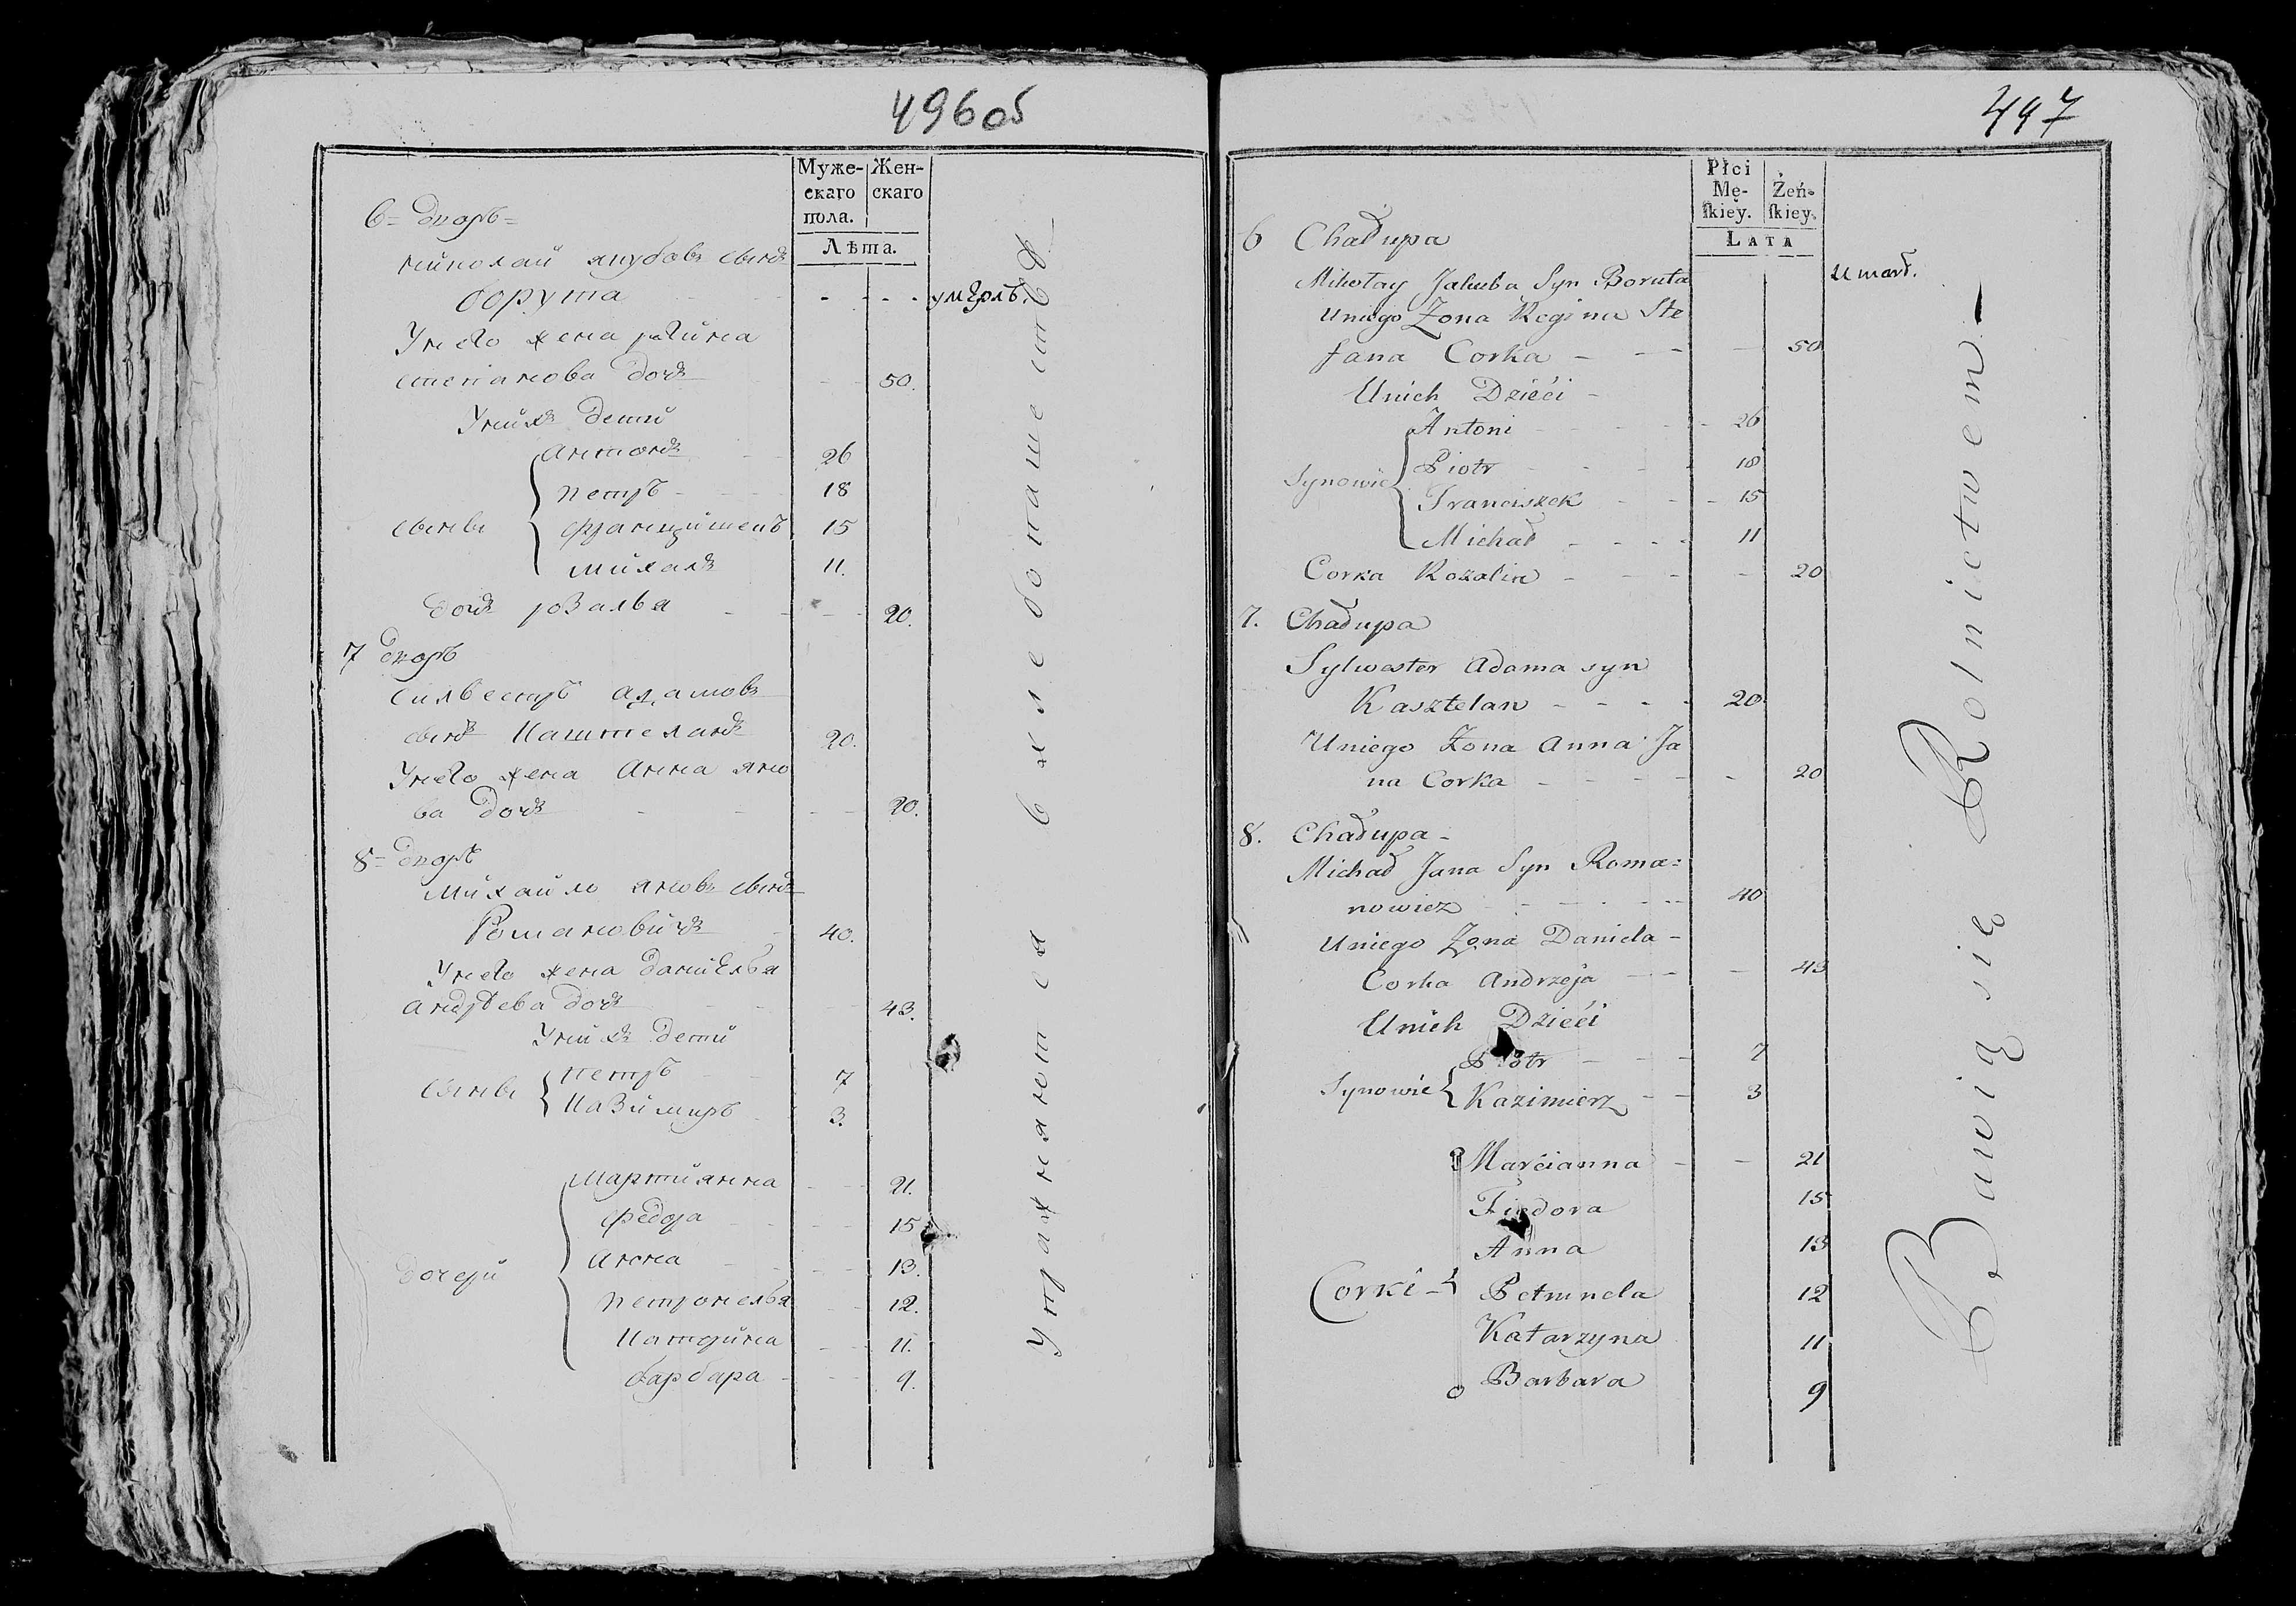 496об
Муже-
скаго
пола.
Жен-
скаго
Лѣта.
6= дворъ=
николай якубовъ сынъ
борута - - - умерлъ.
Унего жена регина
степанова дочь 50.
Унихъ дети
антонъ 26
петръ 18
сыны францишекъ 15
михалъ 11.
дочь розалья 20.
7 дворъ
силвестръ адамовъ
сынъ каштеланъ 20.
Унего жена анна яно
ва дочь 20.
8= дворъ
михайло яновъ сынъ
романовичъ 40.
Унего жена данiелья
андреева дочь 43.
Унихъ дети
сыны петръ 7
казимиръ 3.
мартиянна 21.
федора 15
анна 13.
дочери петронелья 12.
катерина 11.
барбара 9.
упражняются в хлебопашестве
497
Płci
Mę-
ſkiey.
Żeń-
ſkiey.
LATA
6 Chałupa
Mikołay Jakuba Syn Boruta Umarł.
Uniego Żona Regina Ste
fana Corka - - - - 50
Unich Dzieći -
Antoni - - - 26
Piotr - - - 18
Synowie Franciszek - - - 15
Michał - - - - 11
Corka Rozalia - - - - 20
7. Chałupa
Sylwester Adama syn
Kasztelan - - - - 20
Uniego Zona Anna Ja
na Corka - - - - 20
8. Chałupa -
Michał Jana Syn Roma=
nowicz - - - - 40
Uniego Zona Daniela -
Corka Andrzeja - - - 43
Unich Dzieći
Piotr - - - 7
Synowie Kazimierz - - 3
Marcianna - - 21
Fiedora 15
Anna 13
Corki - Petrunela 12
Katarzyna 11
Barbara 9
Bawią się Rolnictwem -